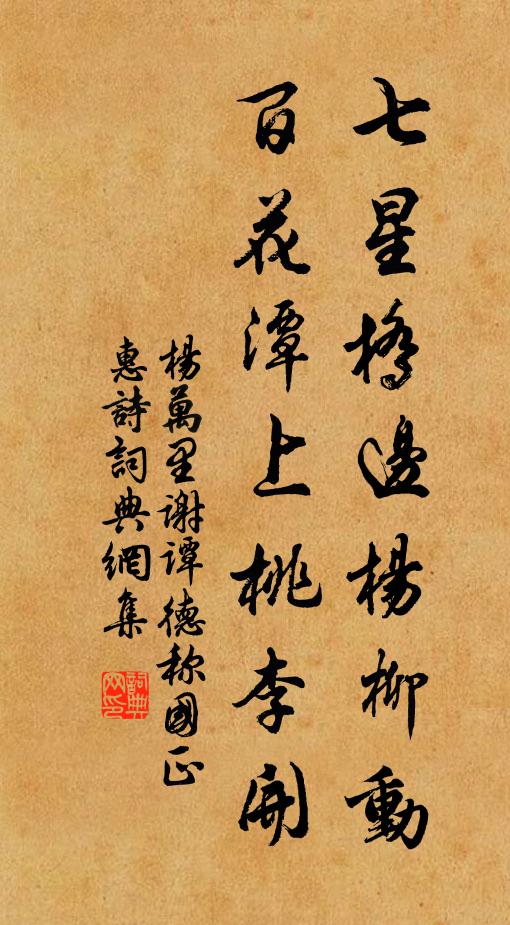 七星橋邊楊柳動
百花潭上桃李開
楊萬里謝譚德称國正
惠詩詞典網集
詞典網印